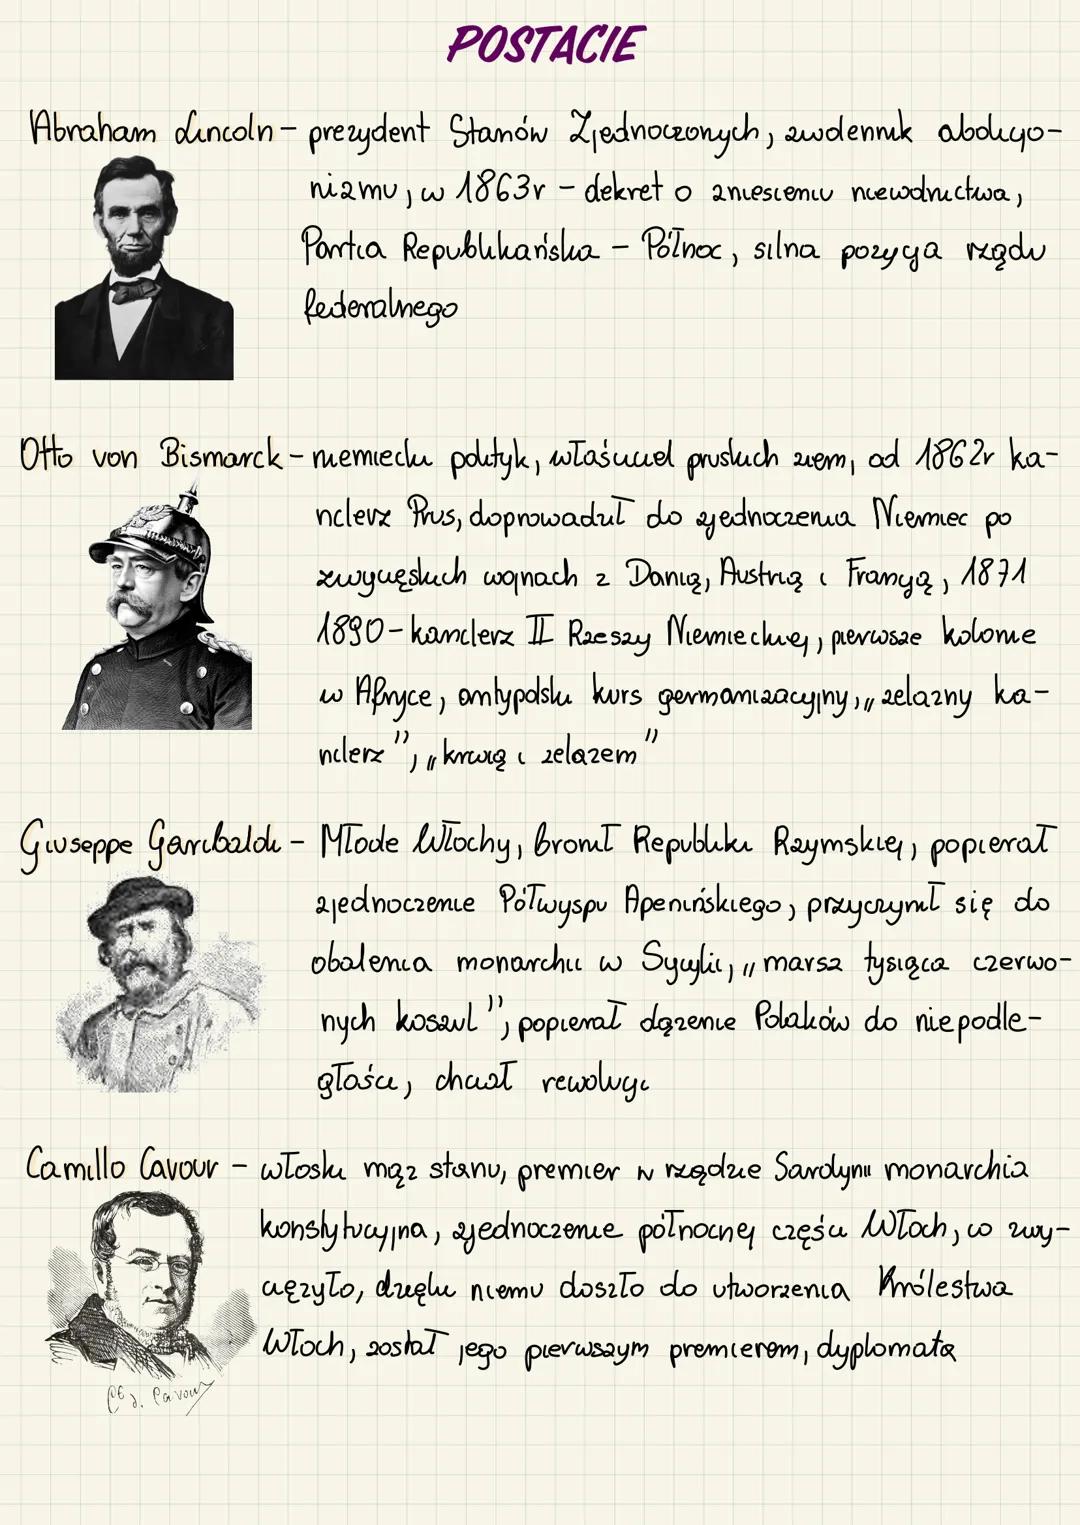 POSTACIE
Abraham Lincoln - prezydent Stanów Zjednoczonych, zwolennik abolicjo-
nizmu, w 1863r - dekret o zniesieniu niewolnictwa,
Partia Republikańska - Północ, silna pozycja rządu
federalnego
Otto von Bismarck - niemiecki polityk, właściciel pruskich ziem, od 1862r ka-
nclerz Prus, doprowadził do zjednoczenia Niemiec po
zwycięskich wojnach z Danią, Austrią i Francją, 1871
1890 - kanclerz II Rzeszy Niemieckiej, pierwsze kolonie
w Afryce, antypolski kurs germanizacyjny, „żelazny ka-
nclerz", „krwią i żelazem"
Giuseppe Garibaldi - Młode Włochy, bronił Republiki Rzymskiej, popierał
zjednoczenie Półwyspu Apenińskiego, przyczynił się do
obalenia monarchii w Sycylii, „marsz tysiąca czerwo-
nych koszul", popierał dążenie Polaków do niepodle-
głości, chciał rewolucji
Camillo Cavour - włoski mąż stanu, premier w rządzie Sardynii monarchia
konstytucyjna, zjednoczenie północnej części Włoch, co zwy-
ciężyło, dzięki niemu doszło do utworzenia Królestwa
Włoch, został jego pierwszym premierem, dyplomata
C. Cavour